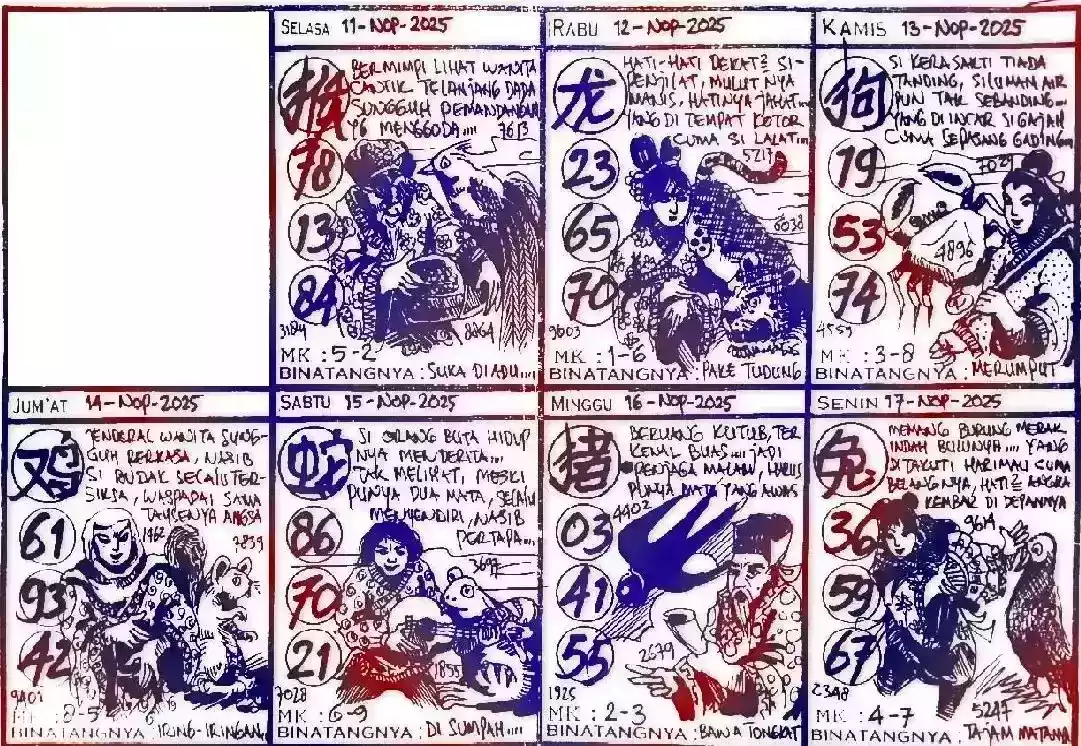 SELASA 11-NOP-2025
猴
BERMIMPI LIHAT WANITA
CANTIK TELANJANG DADA
SUNGGUH PEMANDANGAN
YG MENGGODA....
7613
78
13
84
3184
8864
MK : 5-2
BINATANGNYA : SUKA DIADU....
RABU 12-NOP-2025
龙
HATI-HATI DEKAT² SI-
PENJILAT, MULUTNYA
MANIS, HATINYA JAHAT...
YANG DI TEMPAT KOTOR
CUMA SI LALAT...
5213
23
65
6038
70
9603
MK : 1-6
BINATANGNYA : PAKE TUDUNG
KAMIS 13-NOP-2025
狗
SI KERA SAKTI TIADA
TANDING, SILUMAN AIR
PUN TAK SEBANDING...
YANG DIINCAR SI GAJAH
CUMA SEPASANG GADING...
7029
19
53
4896
74
4559
MK : 3-8
BINATANGNYA : MERUMPUT
JUM'AT 14-NOP-2025
鸡
JENDERAL WANITA SUNG-
GUH PERKASA, NASIB
SI BUDAK SELALU TER-
SIKSA, WASPADAI SAMA
ANGSA
61
1962
7839
93
42
9401
MK :
BINATANGNYA : IRING-IRINGAN
SABTU 15-NOP-2025
蛇
SI ORANG BUTA HIDUP
NYA MENDERITA...
TAK MELIHAT, MESKI
PUNYA DUA MATA, SELALU
MENYENDIRI, NASIB
PERTAPA...
86
3697
70
21
1855
7028
MK : 6-9
BINATANGNYA : DI SUMPAH....
MINGGU 16-NOP-2025
猪
BERUANG KUTUB, TER
KENAL BUAS.... JADI
PENJAGA MALAM, HARUS
PUNYA MATA YANG AWAS
4402
03
41
2679
55
1925
MK : 2-3
BINATANGNYA : BAWA TONGKAT
SENIN 17-NOP-2025
兔
MEMANG BURUNG MERAK
INDAH BULUNYA.... YANG
DITAKUTI HARIMAU CUMA
BELANGNYA, HATI² ANGKA
KEMBAR DI DEPANNYA
9614
36
59
67
2348
5247
MK : 4-7
BINATANGNYA : TAJAM MATANYA